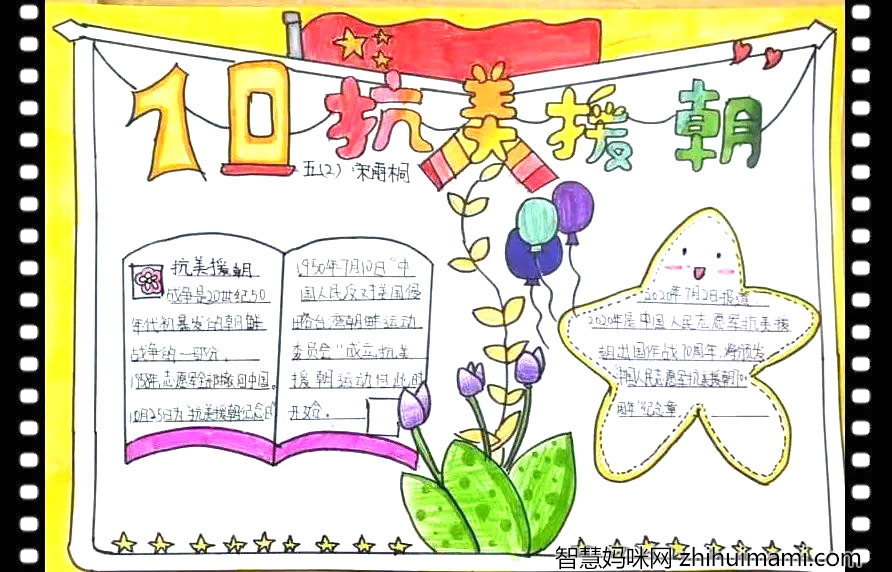 70抗美援朝
五(2) 宋雨桐
抗美援朝
战争是20世纪50
年代初暴发的朝鲜
战争的一部分。
1958年,志愿军全部撤回中国。
10月25日为抗美援朝纪念日
1950年7月10日“中
国人民反对美国侵
略台湾朝鲜运动
委员会”成立,抗美
援朝运动自此时
开始。
2020年7月2日报道
2020年是中国人民志愿军抗美援
朝出国作战70周年,将颁发
“中国人民志愿军抗美援朝70
周年”纪念章。
智慧妈咪网-zhihuimami.com